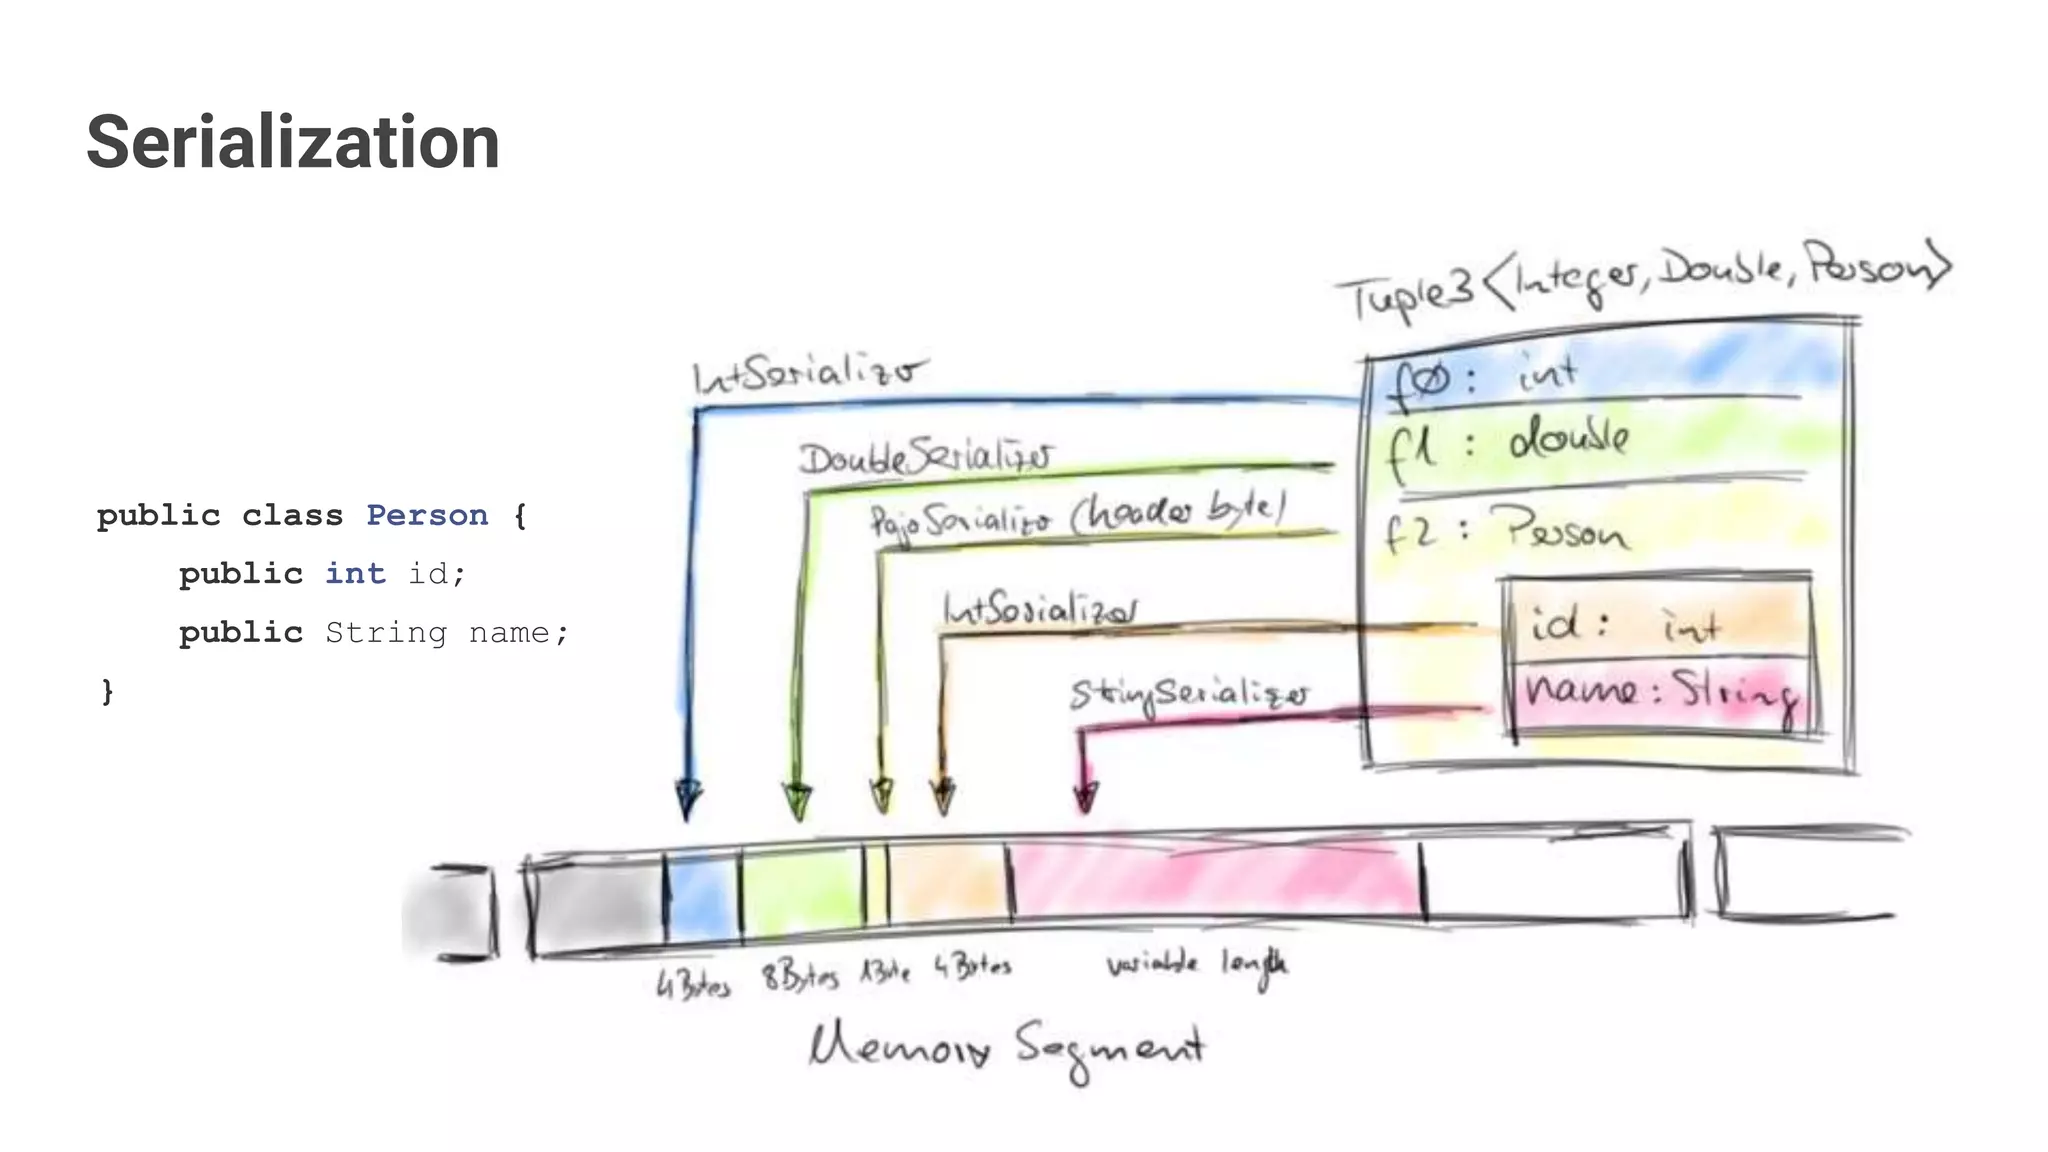 Serialization
Tuple3<Integer, Double, Person>
IntSerializer
f0: int
DoubleSerializer
f1: double
PojoSerializer (header byte)
f2: Person
IntSerializer
id: int
StringSerializer
name: String
public class Person {
public int id;
public String name;
}
4Bytes 8Bytes 1Byte 4Bytes variable length
Memory Segment